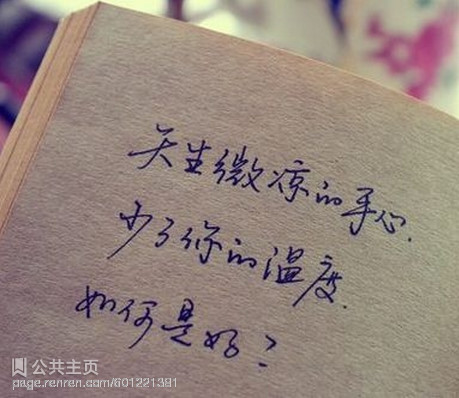 天生微凉的手心.
少了你的温度.
如何是好?
公共主页
page.renren.com/601221381